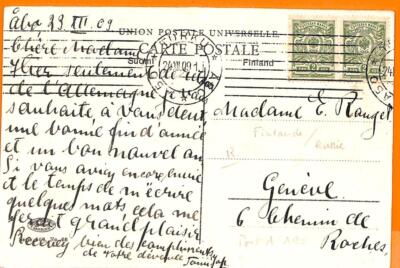 Åbo 23 XII. 09
UNION POSTALE UNIVERSELLE
CARTE POSTALE
Suomi Finland
Chère Madame
Hier seulement de
de l'Allemagne je vous
souhaite à vous deux
une bonne fin d'année
et un bon nouvel an.
Si vous aviez encore envie
et le temps de m'écrire
quelque mots cela me
grand plaisir
Recevez bien des compliments
de votre dévouée
24.XII.09
Madame E. Ranget
Finlande
Genève
6 Chemin de
Roches.